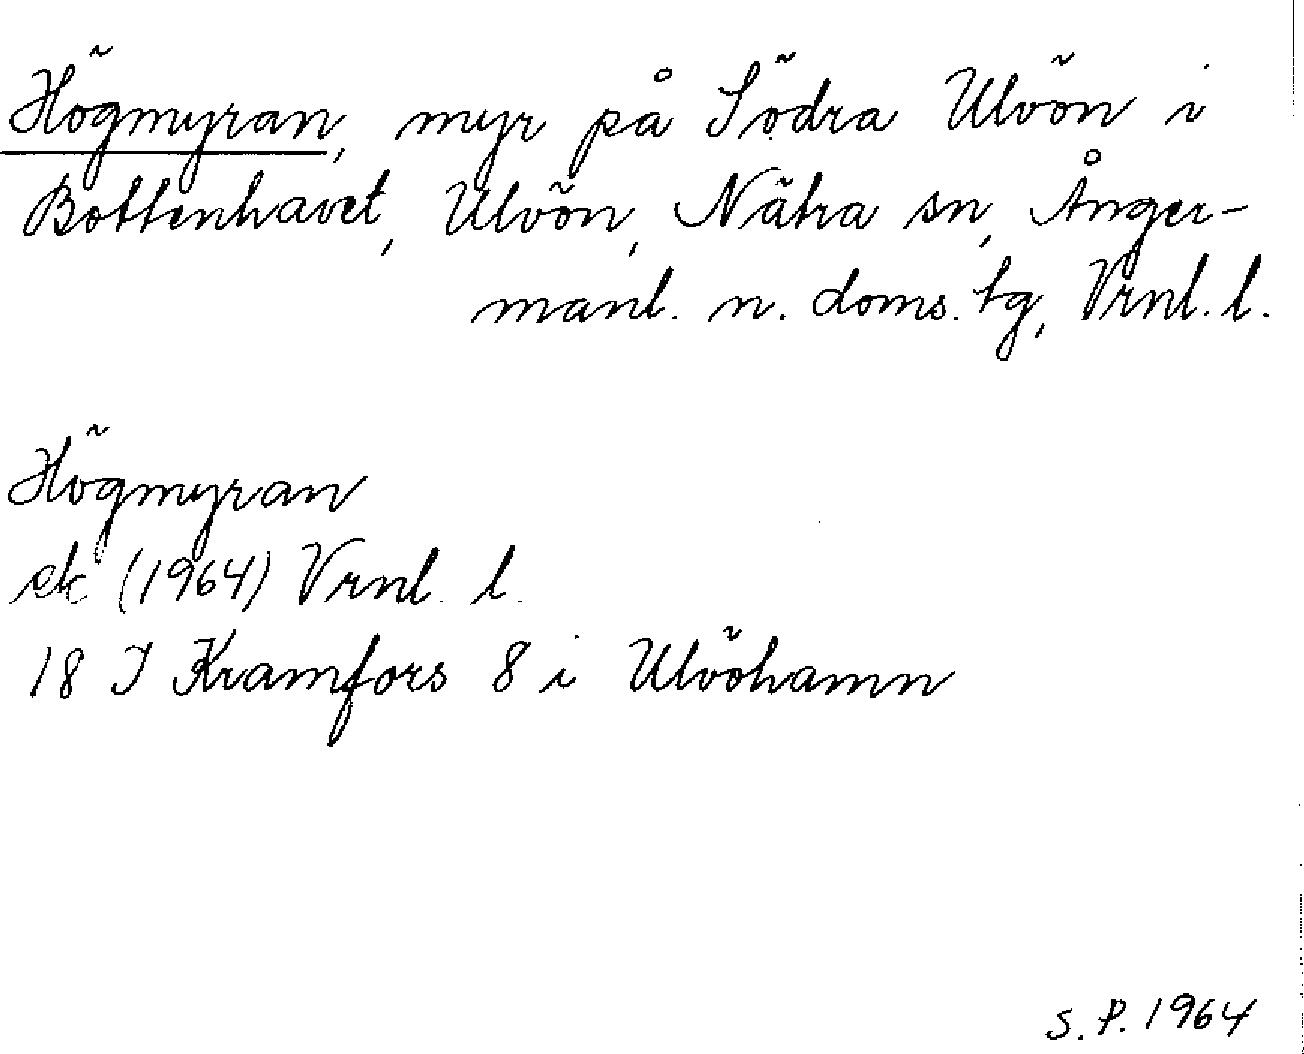 Högmyran, myr på Södra Ulvön i
Bottenhavet, Ulvön, Nätra sn, Ånger-
manl. n. doms. tg, Vrnl. l.
Högmyran
ek (1964) Vrnl. l.
18 I Kramfors 8 i Ulvöhamn
S. P. 1964